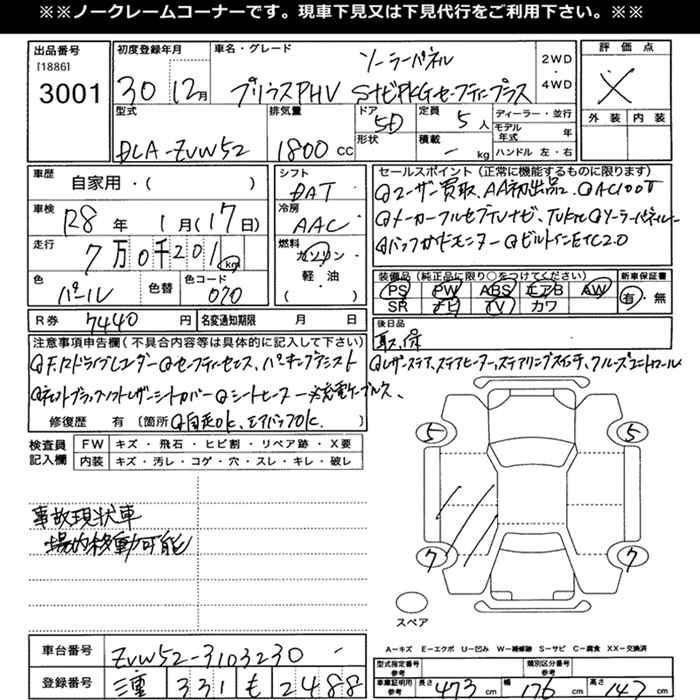 ※※ノークレームコーナーです。現車下見又は下見代行をご利用下さい。※※
出品番号 初度登録年月 車名・グレード ソーラーパネル 2WD 評価点
[1886]
3001 30 12月 プリウスPHV SナビPKGセーフティープラス ・ 4WD
型式 排気量 ドア 5D 定員 5人 ディーラー・並行 外装 内装
形状 積載 - kg モデル年式 年
DLA-ZVW52 1800cc ハンドル 左・右
車歴 自家用・( ) シフト DAT セールスポイント(正常に機能するものに限ります)
車検 R8年 1月(17日) 冷房 AAC ユーザー買取、AA初出品 AC100V
走行 7万0千201km 燃料 ガソリン・軽油 ( ) メーカーフルセグTVナビ、ソーラーパネルルーフ
バックガイドモニター ビルトインETC2.0
色 パール 色替 色コード 070 装備品(純正品に限り○をつけてください) 新車保証書
PS PW ABS エアB AW 有・無
SR ナビ TV カワ
R券 7440円 名変通知期限 月 日 後日品
取、保
注意事項申告欄(不具合内容等は具体的に記入して下さい)
F.Rドライブレコーダー セーフティセンス、パーキングアシスト レザーステア、ステアヒーター、ステアリングスイッチ、クルーズコントロール
シートヒーター 充電ケーブル
修復歴 有 [箇所 自走OK、エアバックOK.
検査員記入欄 FW キズ・飛石・ヒビ割・リペア跡・X要
内装 キズ・汚レ・コゲ・穴・スレ・キレ・破レ
5 5
事故現状車
場内移動可能
7 7
スペア
A=キズ E=エクボ U=凹み W=補修跡 S=サビ C=腐食 XX=交換済
車台番号 ZVW52-3103230 - 型式指定番号 参考 類別区分番号 参考
登録番号 三重 331 も 2488 車庫証明用 参考 長さ 473cm 幅 176cm 高さ 147cm